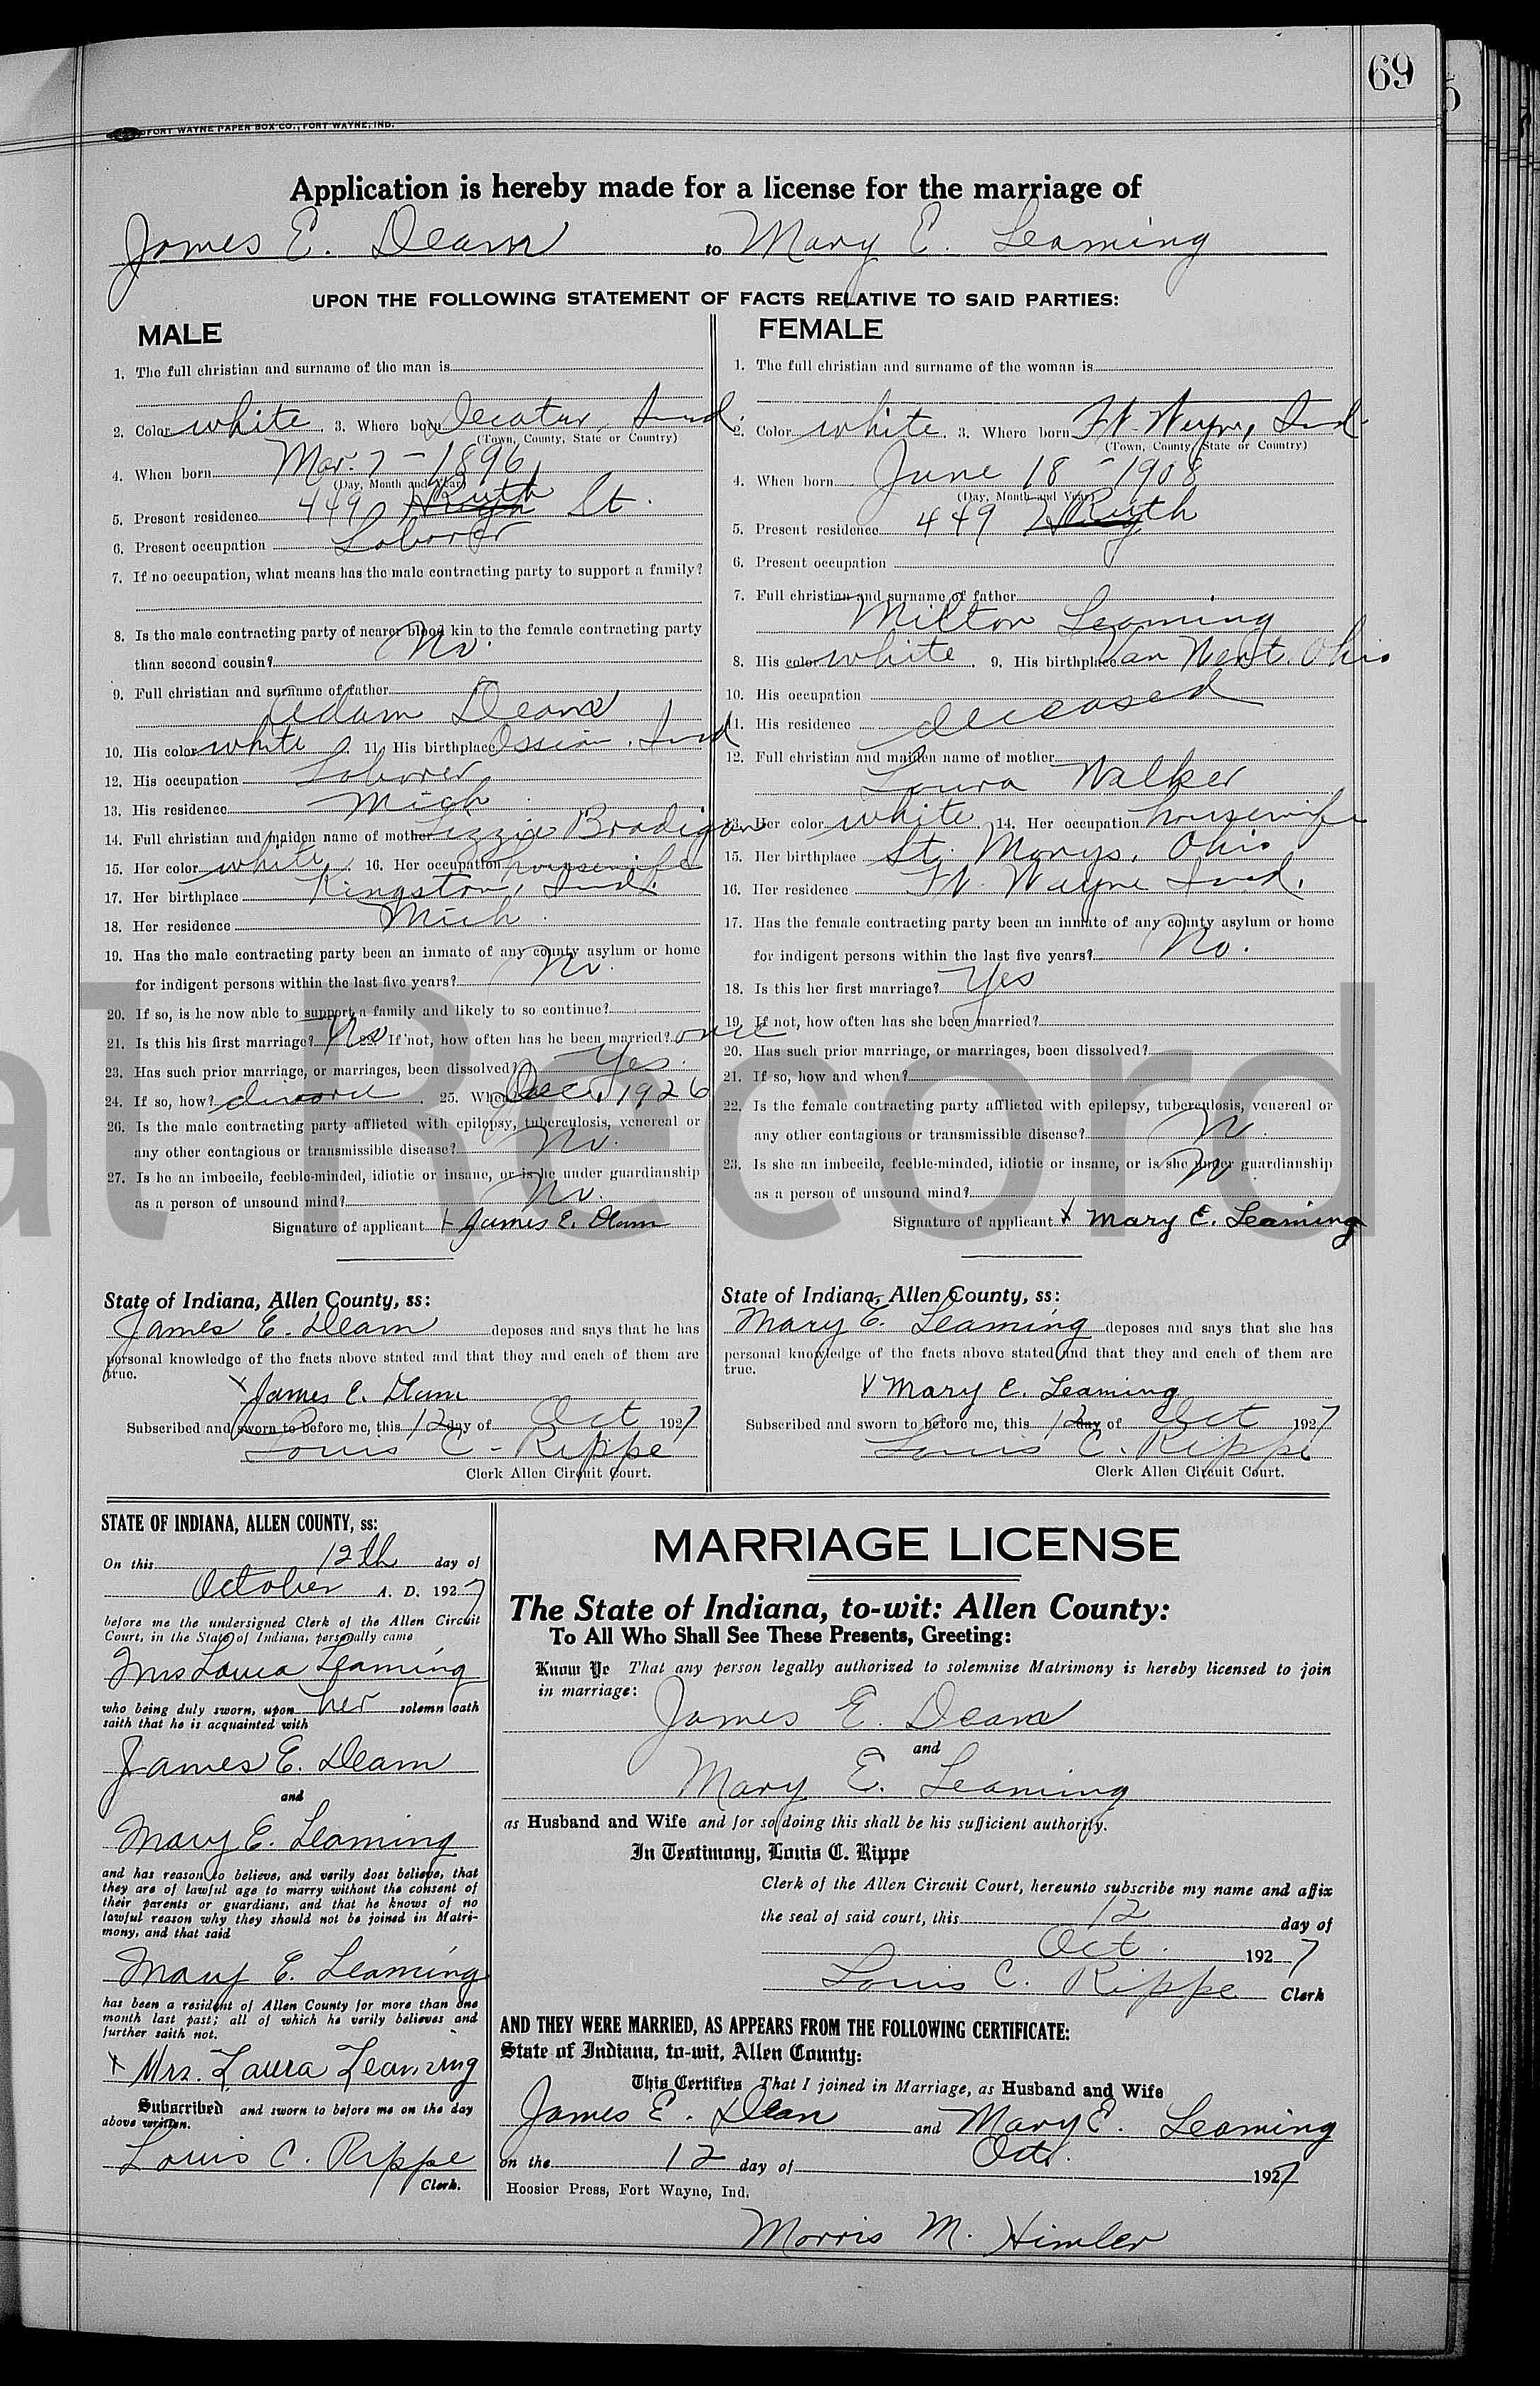 69
FORT WAYNE PAPER BOX CO., FORT WAYNE, IND.
Application is hereby made for a license for the marriage of
James E. Deam to Mary E. Leaming
UPON THE FOLLOWING STATEMENT OF FACTS RELATIVE TO SAID PARTIES:
MALE
1. The full christian and surname of the man is
2. Color white 3. Where born Decatur, Ind.
(Town, County, State or Country)
4. When born Mar. 7 - 1896
(Day, Month and Year)
5. Present residence 449 Ruth St.
6. Present occupation Laborer
7. If no occupation, what means has the male contracting party to support a family?
8. Is the male contracting party of nearer blood kin to the female contracting party
than second cousin? No.
9. Full christian and surname of father
Adam Deam
10. His color white 11. His birthplace Ossian, Ind
12. His occupation Laborer
13. His residence Mich
14. Full christian and maiden name of mother Lizzie Bradigan
15. Her color white 16. Her occupation housewife
17. Her birthplace Kingston, Ind.
18. Her residence Mich.
19. Has the male contracting party been an inmate of any county asylum or home
for indigent persons within the last five years? No.
20. If so, is he now able to support a family and likely to so continue?
21. Is this his first marriage? No 22. If not, how often has he been married? one
23. Has such prior marriage, or marriages, been dissolved? Yes.
24. If so, how? divorce 25. When Dec. 1926
26. Is the male contracting party afflicted with epilepsy, tuberculosis, venereal or
any other contagious or transmissible disease? No.
27. Is he an imbecile, feeble-minded, idiotic or insane, or is he under guardianship
as a person of unsound mind? No.
Signature of applicant x James E. Deam
State of Indiana, Allen County, ss:
James E. Deam deposes and says that he has
personal knowledge of the facts above stated and that they and each of them are
true.
x James E. Deam
Subscribed and sworn to before me, this 12 day of Oct 1927
Louis C. Rippe
Clerk Allen Circuit Court.
FEMALE
1. The full christian and surname of the woman is
2. Color white 3. Where born Ft. Wayne, Ind.
(Town, County State or Country)
4. When born June 18 - 1908
(Day, Month and Year)
5. Present residence 449 Ruth
6. Present occupation
7. Full christian and surname of father
Milton Leaming
8. His color white 9. His birthplace Van Wert, Ohio
10. His occupation
deceased
11. His residence
12. Full christian and maiden name of mother
Laura Walker
13. Her color white 14. Her occupation housewife
15. Her birthplace St. Marys, Ohio
16. Her residence Ft. Wayne Ind.
17. Has the female contracting party been an inmate of any county asylum or home
for indigent persons within the last five years? No.
18. Is this her first marriage? Yes
19. If not, how often has she been married?
20. Has such prior marriage, or marriages, been dissolved?
21. If so, how and when?
22. Is the female contracting party afflicted with epilepsy, tuberculosis, venereal or
any other contagious or transmissible disease? No.
23. Is she an imbecile, feeble-minded, idiotic or insane, or is she under guardianship
as a person of unsound mind? No
Signature of applicant x Mary E. Leaming
State of Indiana, Allen County, ss:
Mary E. Leaming deposes and says that she has
personal knowledge of the facts above stated and that they and each of them are
true.
x Mary E. Leaming
Subscribed and sworn to before me, this 12 day of Oct 1927
Louis C. Rippe
Clerk Allen Circuit Court.
al Record
STATE OF INDIANA, ALLEN COUNTY, ss:
On this 12th day of
October A. D. 1927
before me the undersigned Clerk of the Allen Circuit
Court, in the State of Indiana, personally came
Mrs Laura Leaming
who being duly sworn, upon her solemn oath
saith that he is acquainted with
James E. Deam
and
Mary E. Leaming
and has reason to believe, and verily does believe, that
they are of lawful age to marry without the consent of
their parents or guardians, and that he knows of no
lawful reason why they should not be joined in Matri-
mony, and that said
Mary E. Leaming
has been a resident of Allen County for more than one
month last past; all of which he verily believes and
further saith not.
x Mrs. Laura Leaming
Subscribed and sworn to before me on the day
above written.
Louis C. Rippe
Clerk.
MARRIAGE LICENSE
The State of Indiana, to-wit: Allen County:
To All Who Shall See These Presents, Greeting:
Know Ye That any person legally authorized to solemnize Matrimony is hereby licensed to join
in marriage:
James E. Deam
and
Mary E. Leaming
as Husband and Wife and for so doing this shall be his sufficient authority.
In Testimony, Louis C. Rippe
Clerk of the Allen Circuit Court, hereunto subscribe my name and affix
the seal of said court, this 12 day of
Oct. 1927
Louis C. Rippe Clerk
AND THEY WERE MARRIED, AS APPEARS FROM THE FOLLOWING CERTIFICATE:
State of Indiana, to-wit, Allen County:
This Certifies That I joined in Marriage, as Husband and Wife
James E. Dean and Mary E. Leaming
on the 12 day of Oct. 1927
Hoosier Press, Fort Wayne, Ind.
Morris M. Himler